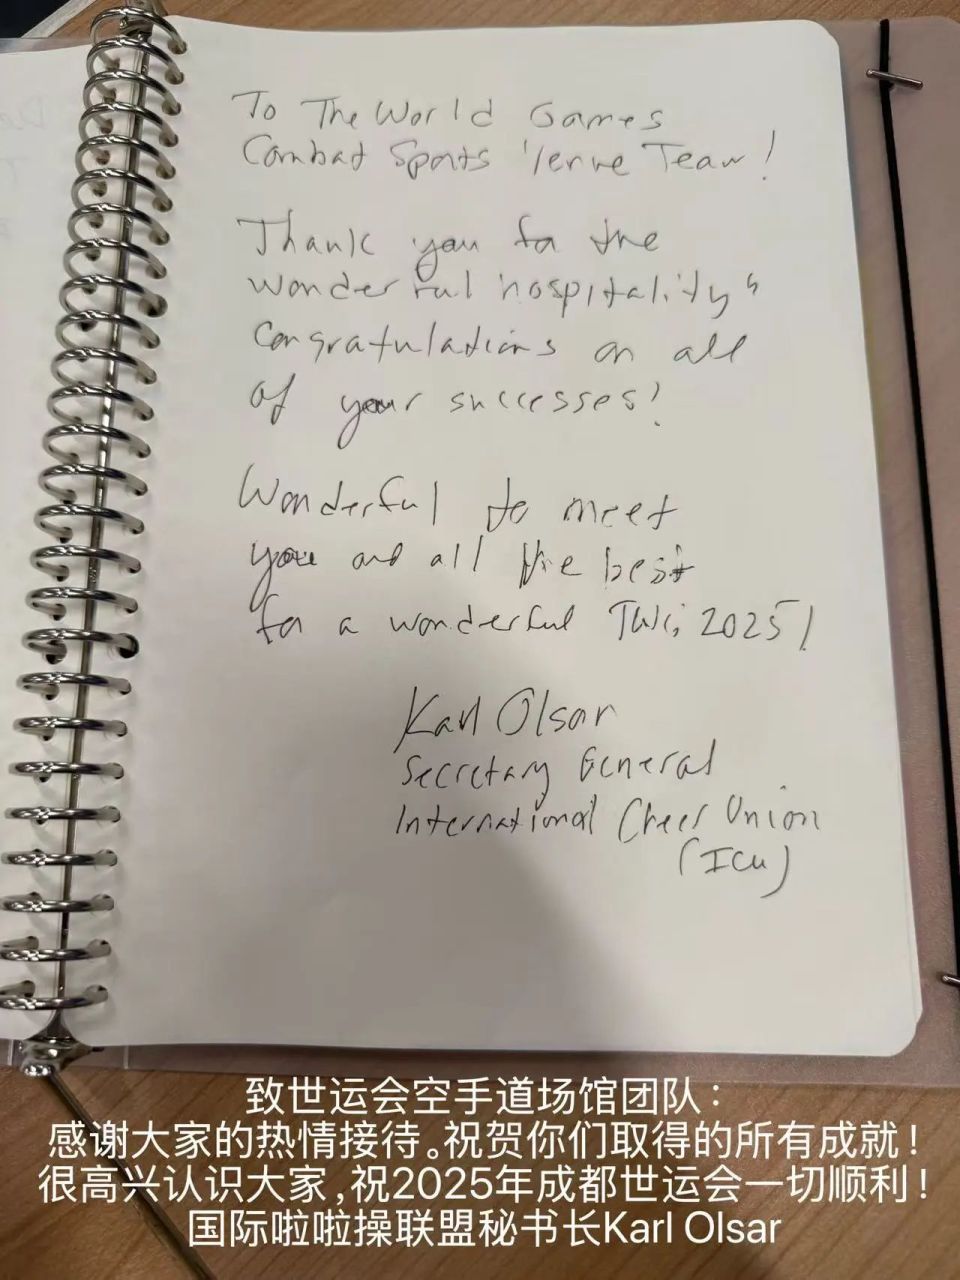 To The World Games
Combat Sports Venue Team!
Thank you for the
wonderful hospitality &
congratulations on all
of your successes!
Wonderful to meet
you and all the best
for a wonderful TWG 2025!
Karl Olsar
Secretary General
International Cheer Union
(ICU)
致世运会空手道场馆团队：
感谢大家的热情接待。祝贺你们取得的所有成就！
很高兴认识大家,祝2025年成都世运会一切顺利！
国际啦啦操联盟秘书长Karl Olsar